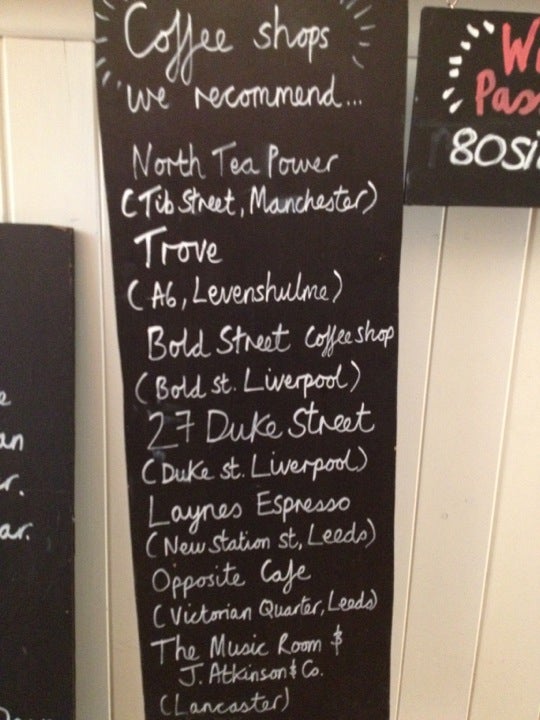 Coffee shops
we recommend...
North Tea Power
(Tib Street, Manchester)
Trove
(A6, Levenshulme)
Bold Street Coffee shop
(Bold st. Liverpool)
27 Duke Street
(Duke st. Liverpool)
Laynes Espresso
(New Station st, Leeds)
Opposite Cafe
(Victorian Quarter, Leeds)
The Music Room &
J. Atkinson & Co.
(Lancaster)
Wi
Pas
80si
an
r.
ar.